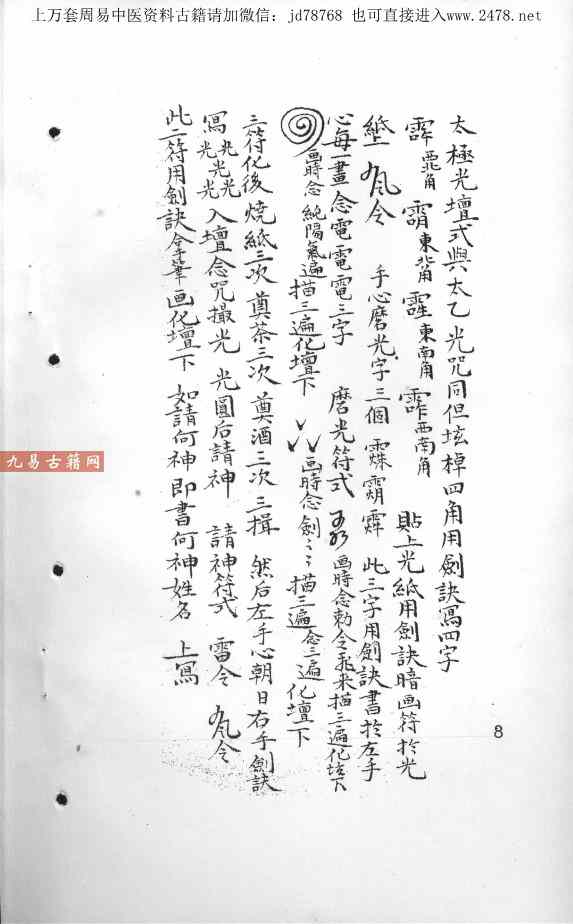 上万套周易中医资料古籍请加微信：jd78768 也可直接进入www.2478.net
太極光壇式與太乙光咒同但坛棹四角用劍訣寫四字
西北角 東北角 東南角 西南角 貼上光紙用劍訣暗画符於光
紙上 令 手心磨光字三個 此三字用劍訣書於左手
心每一畫念電電電三字 磨光符式 画時念勅令 來描三遍化坛下
画時念純陽氣遍描三遍化壇下 画時念劍〻〻描三遍念三遍化壇下
三符化後燒紙三次奠茶三次奠酒三次三揖 然后左手心朝日右手劍訣
寫光光光光光入壇念咒撮光 光圓后請神 請神符式 雷令 令
此二符用劍訣 筆画化壇下 如請何神即書何神姓名 上寫
九易古籍网
8